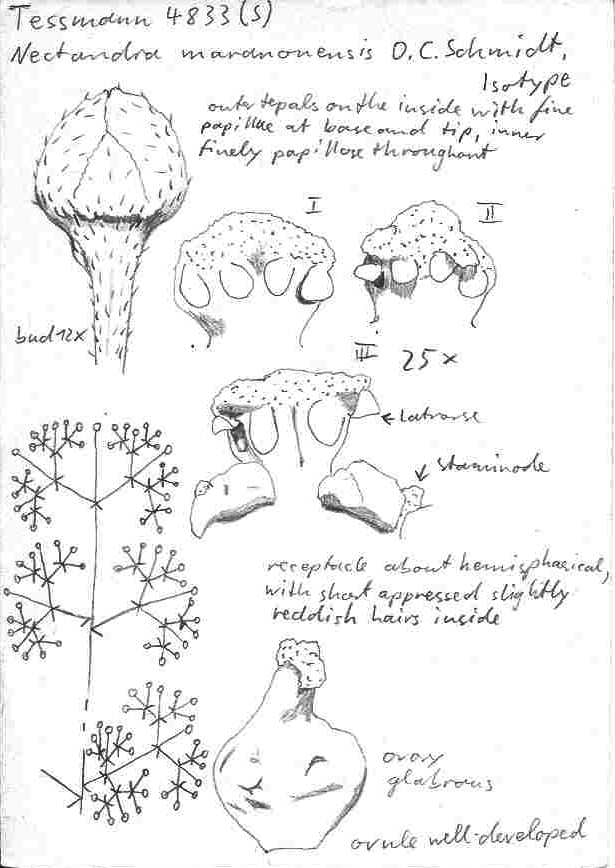 Tessmann 4833 (S)
Nectandra maranonensis O.C. Schmidt,
Isotype
outer tepals on the inside with fine
papillae at base and tip, inner
finely papillose throughout
I
II
bud 12x
III 25x
← Latrorse
staminode
receptacle about hemispherical,
with short appressed slightly
reddish hairs inside
ovary
glabrous
ovule well-developed